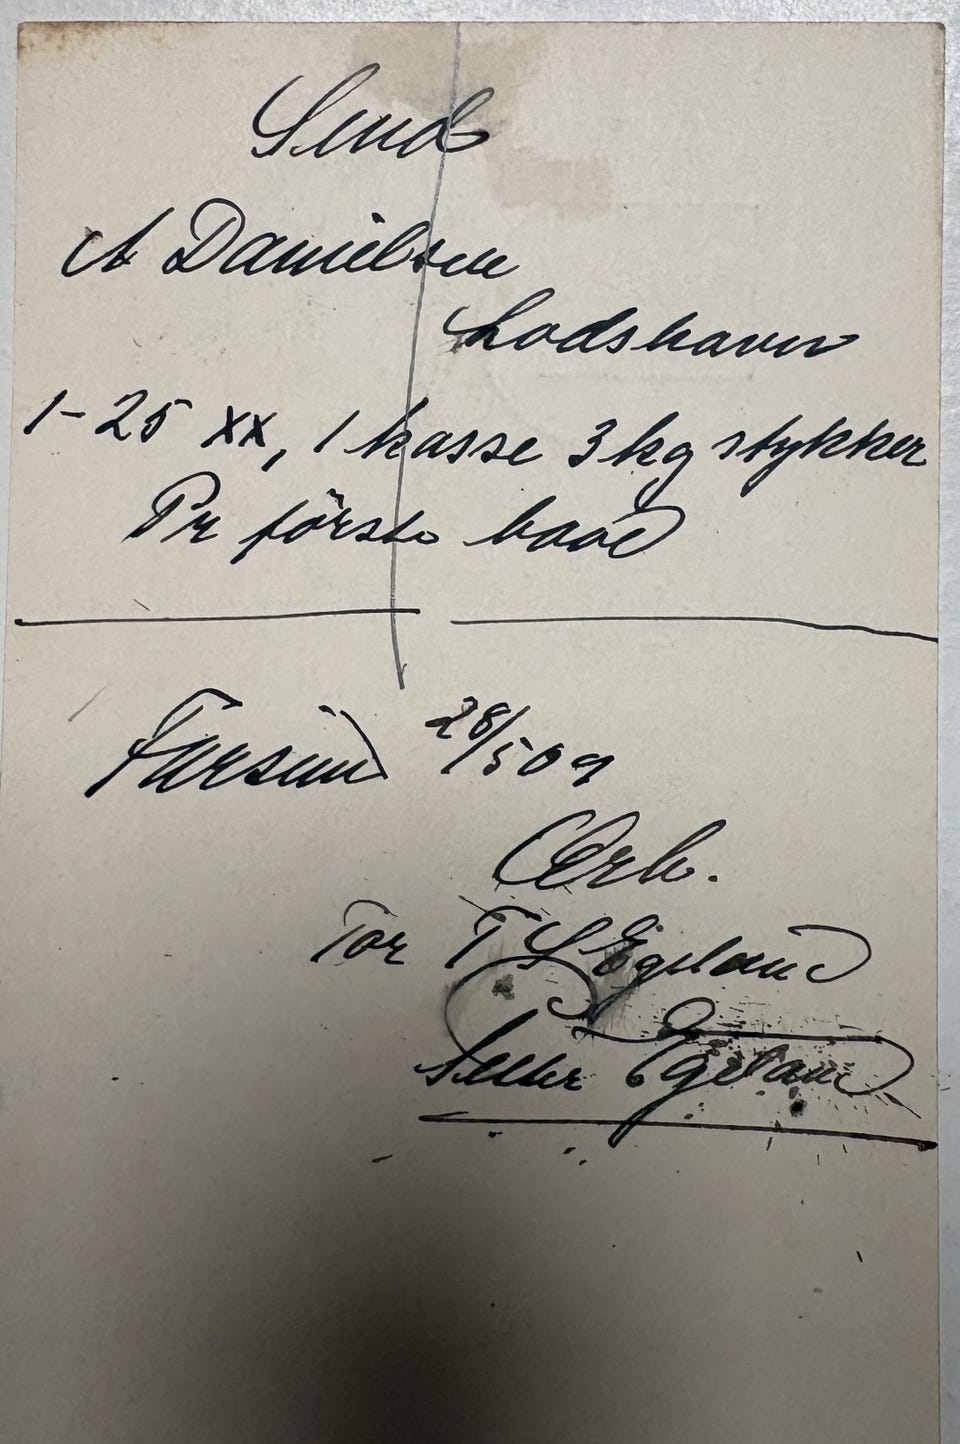 Send
A Danielsen
Lodshavn
1-25 xx, 1 kasse 3 kg stykker
Pr förste baad
Farsund 28/5 09
Ærb.
for T S Egeland
Egeland